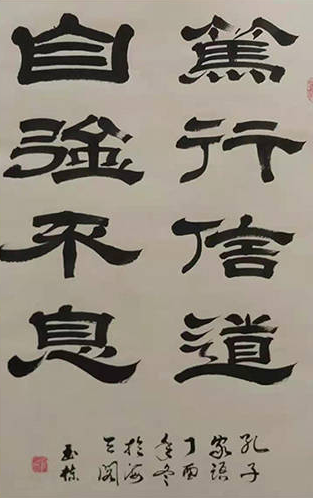 篤行信道
自強不息
孔子
家語
丁酉
冬
於海
玉栋